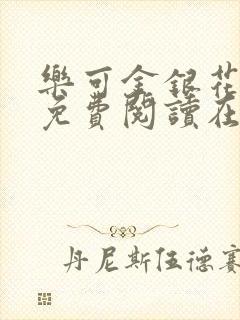 樂可金銀花
免費閱讀在
丹尼斯伍德賽